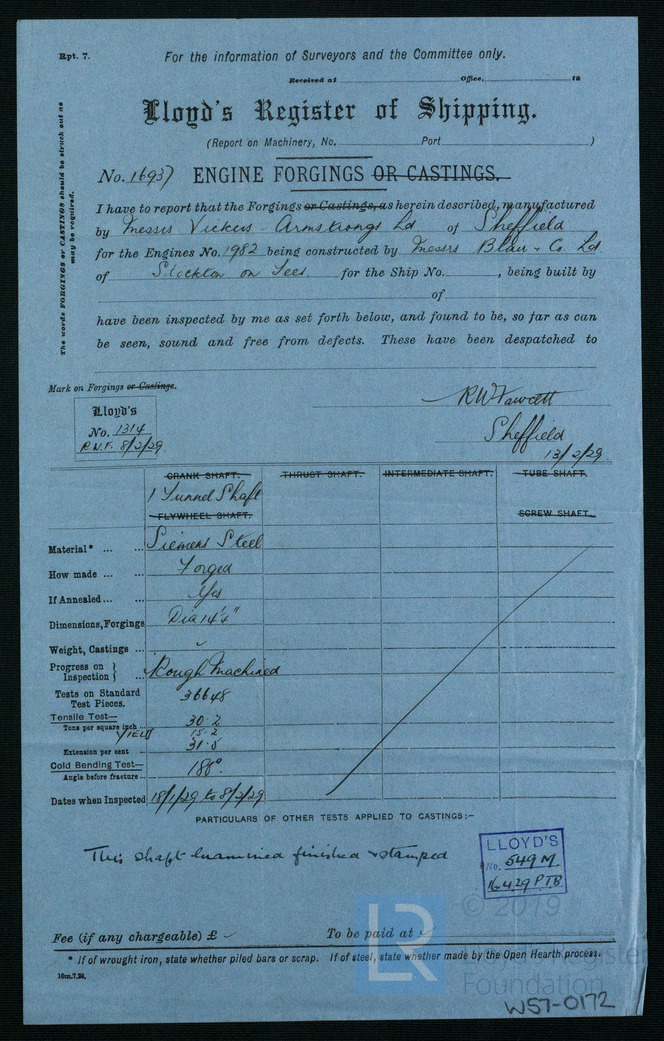 Rpt. 7.
For the information of Surveyors and the Committee only.
Received at Office, 19
Lloyd's Register of Shipping.
(Report on Machinery, No. Port )
The words FORGINGS or CASTINGS should be struck out as may be required.
No. 16937 ENGINE FORGINGS OR CASTINGS.
I have to report that the Forgings or Castings, as herein described, manufactured
by Messrs Vickers-Armstrongs Ld of Sheffield
for the Engines No. 1982 being constructed by Messrs Blair & Co Ld
of Stockton on Tees. for the Ship No. , being built by
of
have been inspected by me as set forth below, and found to be, so far as can
be seen, sound and free from defects. These have been despatched to
Mark on Forgings or Castings.
Lloyd's
No. 1314
R.W.F. 8/2/29
RWFawcett
Sheffield
13/2/29.
CRANK SHAFT. THRUST SHAFT. INTERMEDIATE SHAFT. TUBE SHAFT.
1 Tunnel Shaft
FLYWHEEL SHAFT. SCREW SHAFT.
Material* ... ... Siemens Steel
How made ... ... Forged
If Annealed... ... Yes
Dimensions, Forgings Dia 14¼"
Weight, Castings ...
Progress on Inspection } ... Rough Machined
Tests on Standard Test Pieces. 36648
Tensile Test—
Tons per square inch 30.2
YIELD 15.2
Extension per cent 31.5
Cold Bending Test— 180°
Angle before fracture
Dates when Inspected 18/1/29 to 8/2/29
PARTICULARS OF OTHER TESTS APPLIED TO CASTINGS:-
This shaft examined finished & stamped
LLOYD'S
No. 549 M
16.4.29 PTB
© 2019
Fee (if any chargeable) £ To be paid at
* If of wrought iron, state whether piled bars or scrap. If of steel, state whether made by the Open Hearth process.
10m,7,28.
LR
Lloyd's Register
Foundation
W57-0172